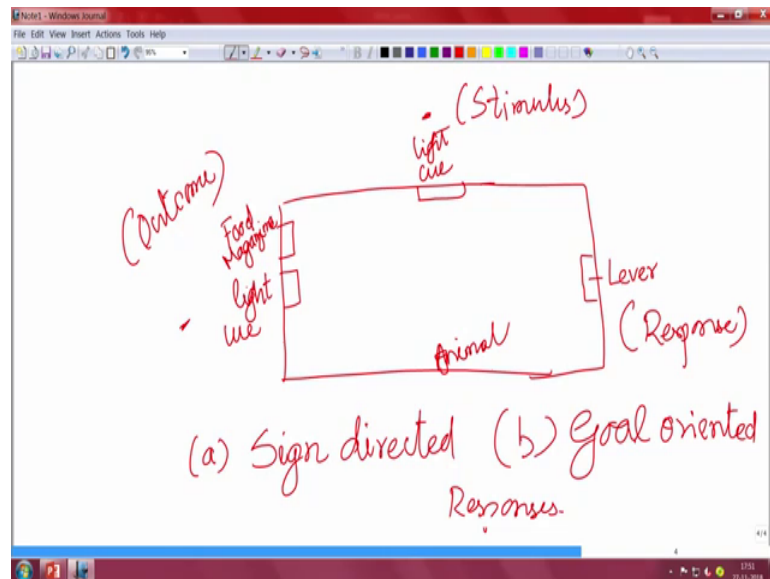 Note1 - Windows Journal
File Edit View Insert Actions Tools Help
96%
(Stimulus)
light
cue
(Outcome)
Food
Magazine
light
cue
Lever
(Response)
Animal
(a) Sign directed (b) Goal oriented
Responses.
4/4
4
17:51
22-11-2016